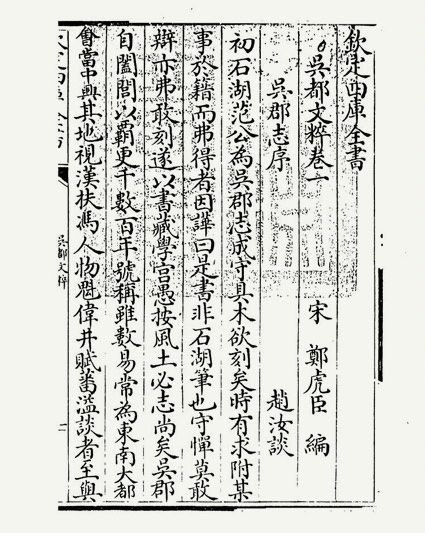 欽定四庫全書
吳都文粹卷一
宋 鄭虎臣 編
吳郡志序
趙汝談
初石湖范公為吳郡志成守具木欲刻矣時有求附某
事於籍而弗得者因譁曰是書非石湖筆也守憚莫敢
辯亦弗敢刻遂以書藏學宮愚按風土必志尚矣吳郡
自闔閭以霸更千數百年號稱雖數易常為東南大都
會當中興其地視漢扶馮人物魁偉井賦蕃溢談者至與
吳都文粹
一